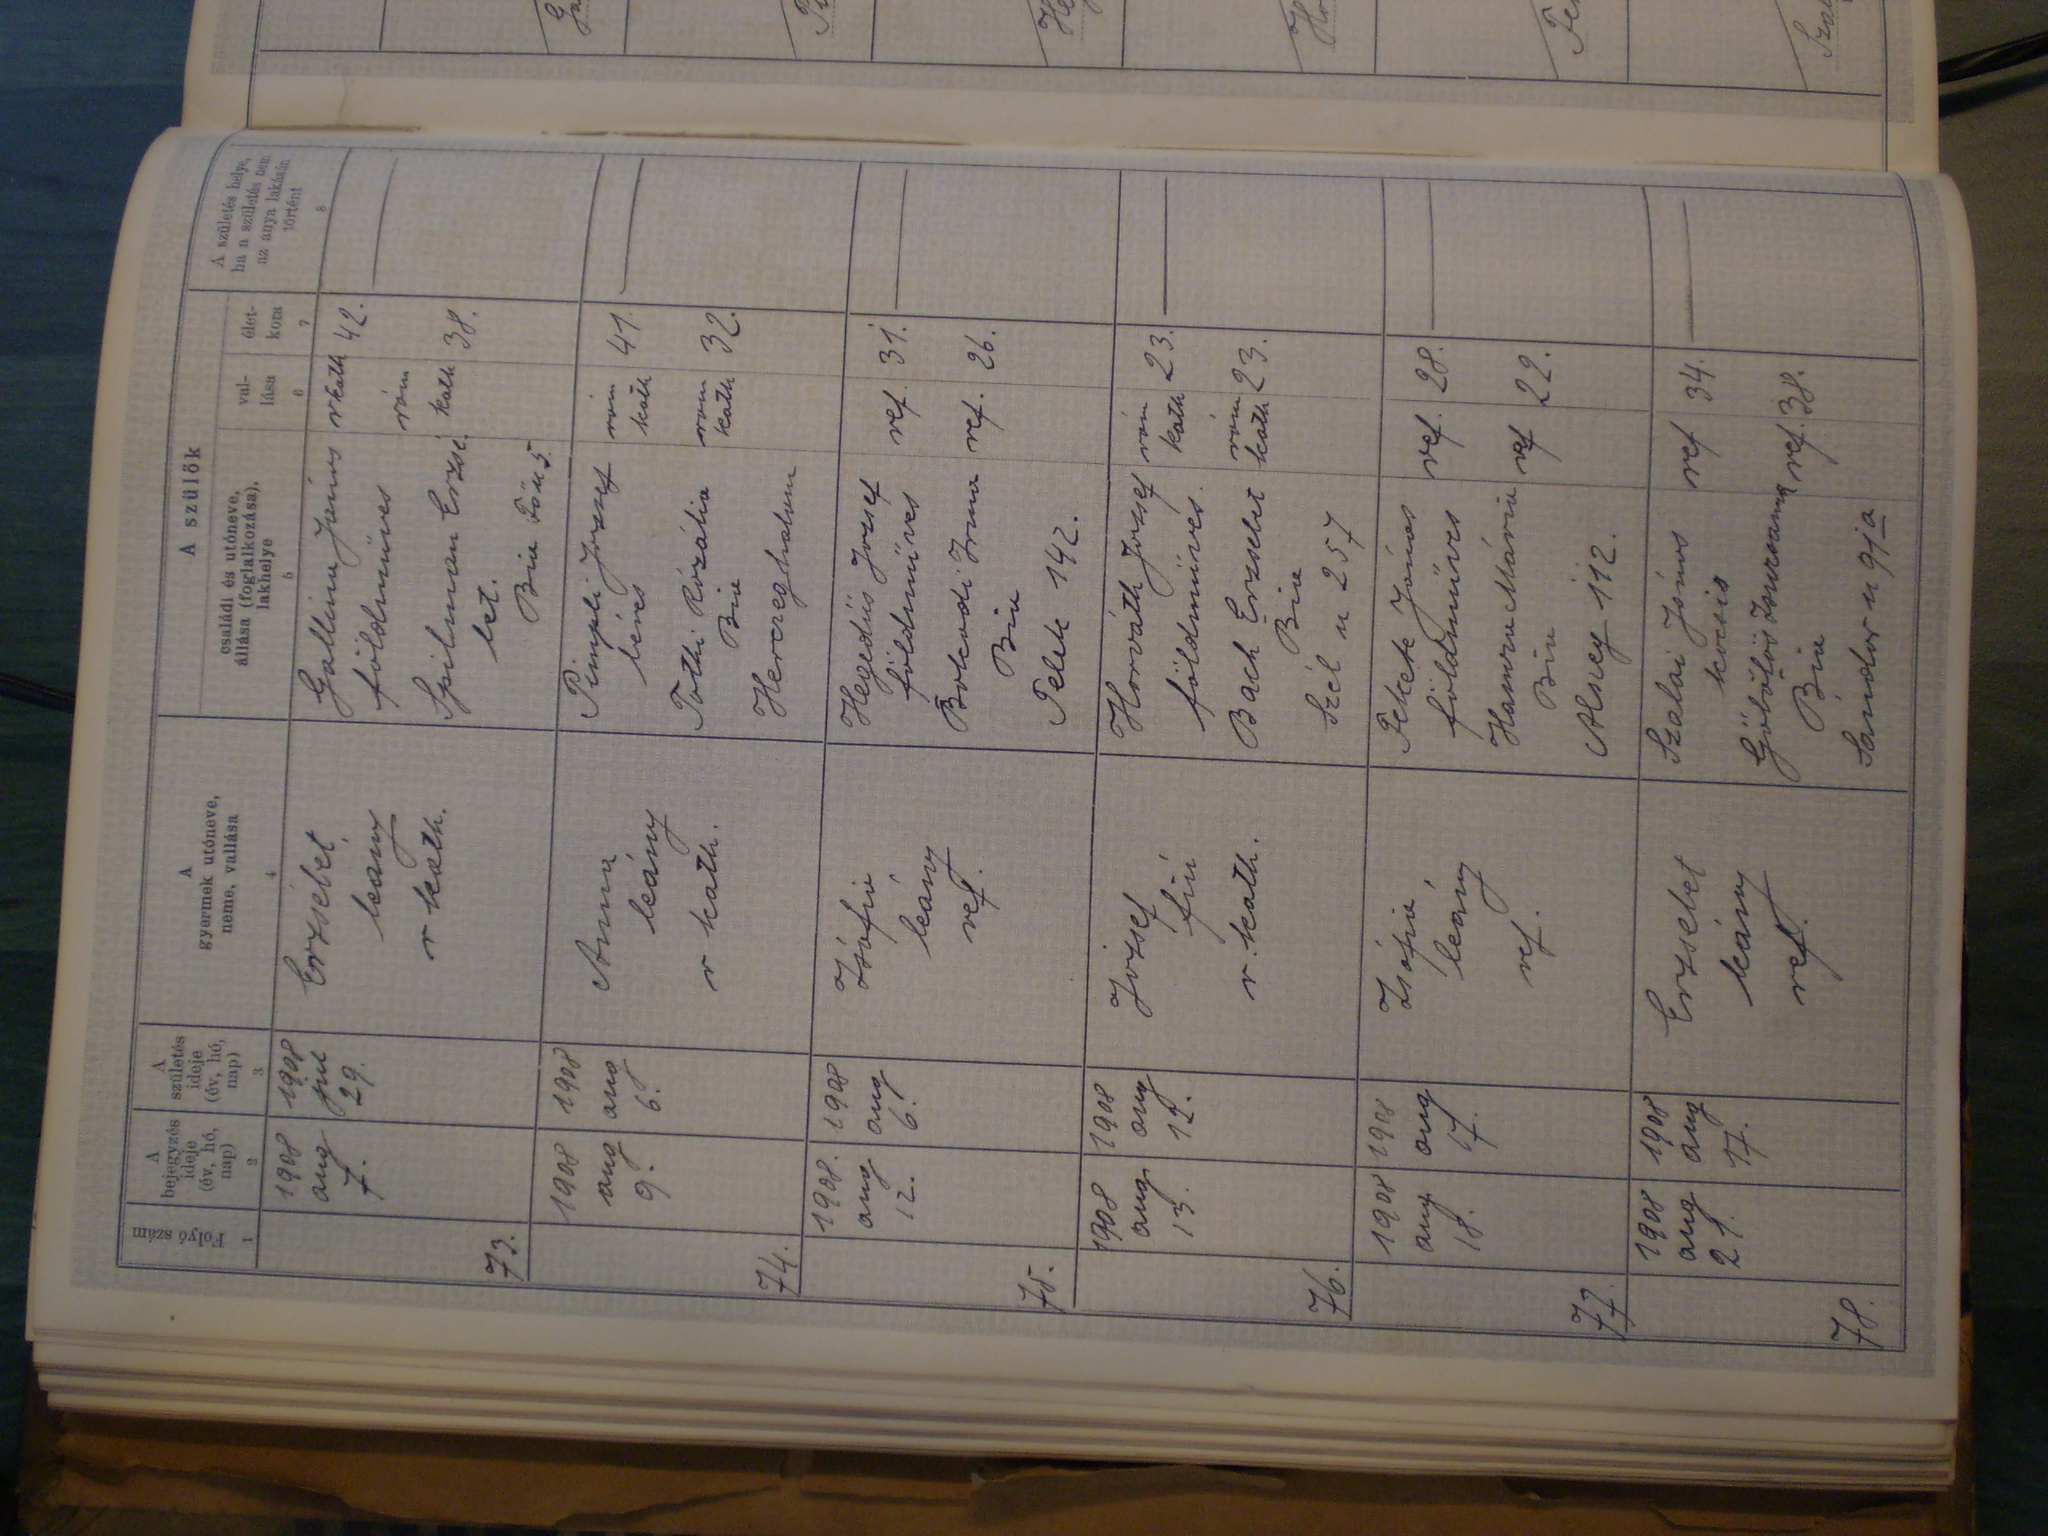 A szülők
Folyó szám
A bejegyzés ideje (év, hó, nap)
A születés ideje (év, hó, nap)
A gyermek utóneve, neme, vallása
családi és utóneve, állása (foglalkozása), lakhelye
vallása
életkora
A születés helye, ha a születés nem az anya lakásán történt
1 2 3 4 5 6 7 8
73.
1908 aug 7.
1908 jul 29.
Erzsébet
leány
r kath.
Gallina János rkath 42.
földmüves
Spilman Erzsé róm kath 38.
bet.
Bia Fő u 5.
74.
1908 aug 9.
1908 aug 6.
Anna
leány
r kath.
Pimpli József róm kath 41.
béres
Tóthi Rozália róm kath 32.
Bia
Herczeghalom
75.
1908. aug 12.
1908 aug 6.
Zsófia
leány
ref.
Hegedüs József ref. 31.
földmüves
Bokodi Irma ref. 26.
Bia
Telek 142.
76.
1908 aug 13.
1908 aug 12.
József
fiu
r. kath.
Horváth József róm kath 23.
földmüves.
Bach Erzsébet róm kath 23.
Bia
Szél u 257
77.
1908 aug 18.
1908 aug 17.
Zsófia
leány
ref.
Pekek János ref. 28.
földmüves
Hamza Mária ref 22.
Bia
Alszeg 112.
78.
1908 aug 21.
1908 aug 17.
Erzsébet
leány
ref.
Szalai János ref 34.
kocsis
Göbölös Zsuzsanna ref. 38.
Bia
Sándor u 91a